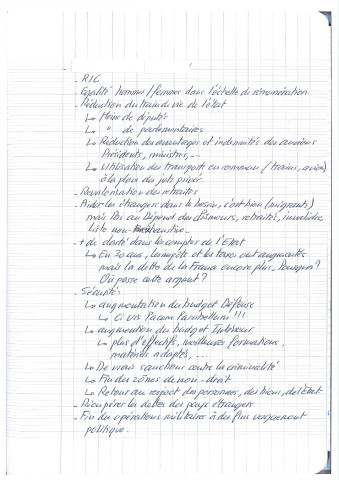 - RIC
- Egalité hommes/femmes dans l'échelle de rémunération
- Réduction du train de vie de l'état
↳ Moins de députés
↳ " de parlementaires
↳ Réduction des avantages et indemnités des anciens
Présidents, ministres, ...
↳ Utilisation des transport en commun (trains, avion)
à la place des jets privés
- Revalorisation des retraites
- Aider les étrangers dans le besoin, c'est bien (migrants)
mais Pas au Dépend des chômeurs, retraités, invalides,
liste non-exhaustive.
- + de clarté dans les comptes de l'Etat
↳ En 30 ans, les impôts et les taxes ont augmentés
mais la dette de la France encore plus, Pourquoi?
Où passe cette argent?
- Sécurité
↳ augmentation du budget Défense
↳ Ci Vis Pacum Parabellum !!!
↳ augmention du budget Intérieur
↳ plus d'effectifs, meilleures formations,
matériels adaptés, ...
↳ De vrais sanctions contre la criminalité
↳ Fin des zônes de non-droit
↳ Retour au respect des personnes, des biens, de l'Etat
- Récupérer les dettes des pays étrangers
- Fin des opérations militaires à des fins uniquement
politique.